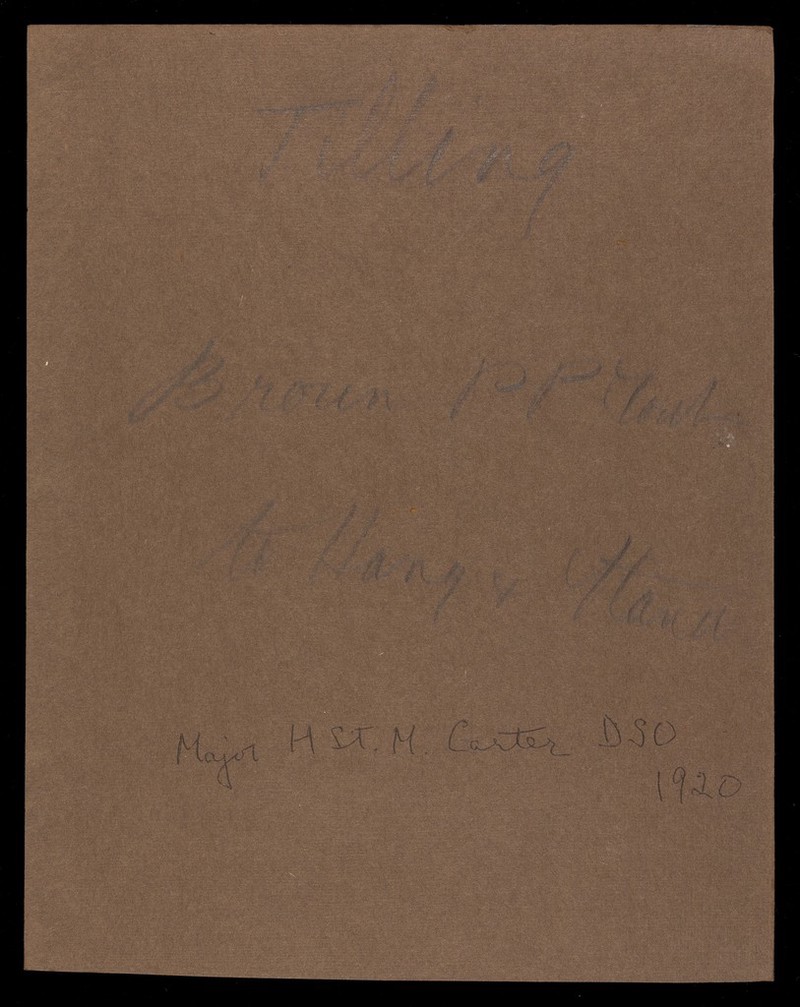 Tilling
Brown PP
to Hang &
Major H ST. M. Carter DSO
1920